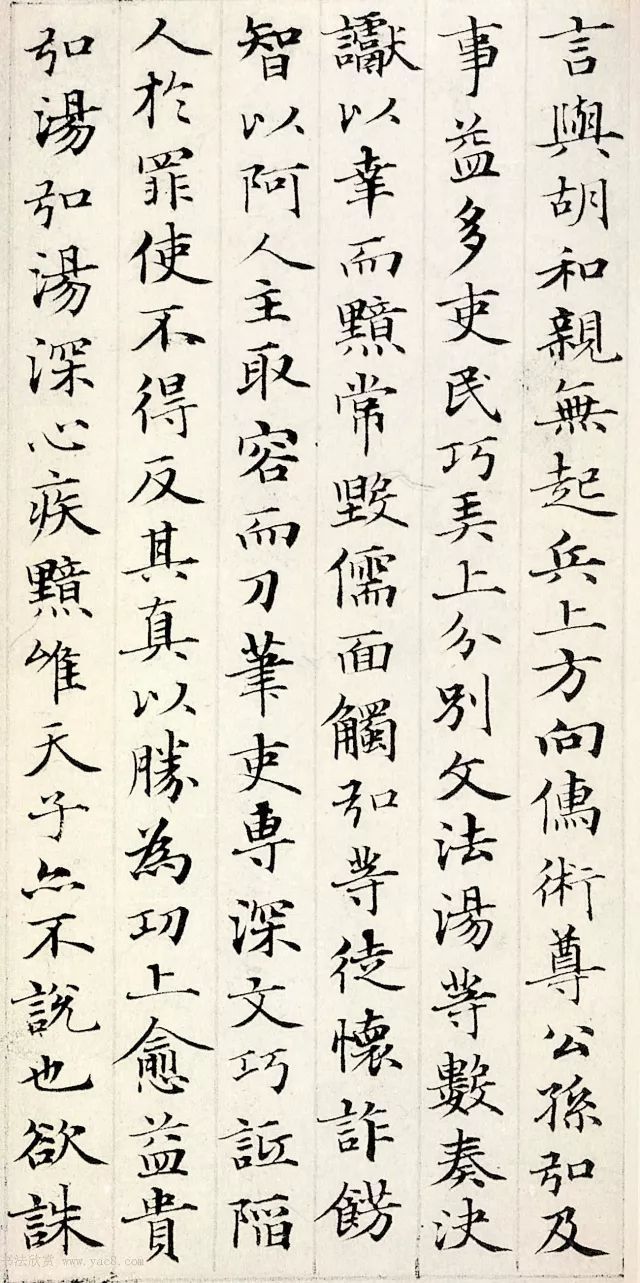 言與胡和親無起兵上方向儒術尊公孫弘及
事益多吏民巧弄上分别文法湯等數奏決
讞以幸而黯常毀儒面觸弘等徒懷詐飾
智以阿人主取容而刀筆吏專深文巧詆陷
人於罪使不得反其真以勝為功上愈益貴
弘湯弘湯深心疾黯唯天子亦不說也欲誅
书法欣赏 www.yac8.com